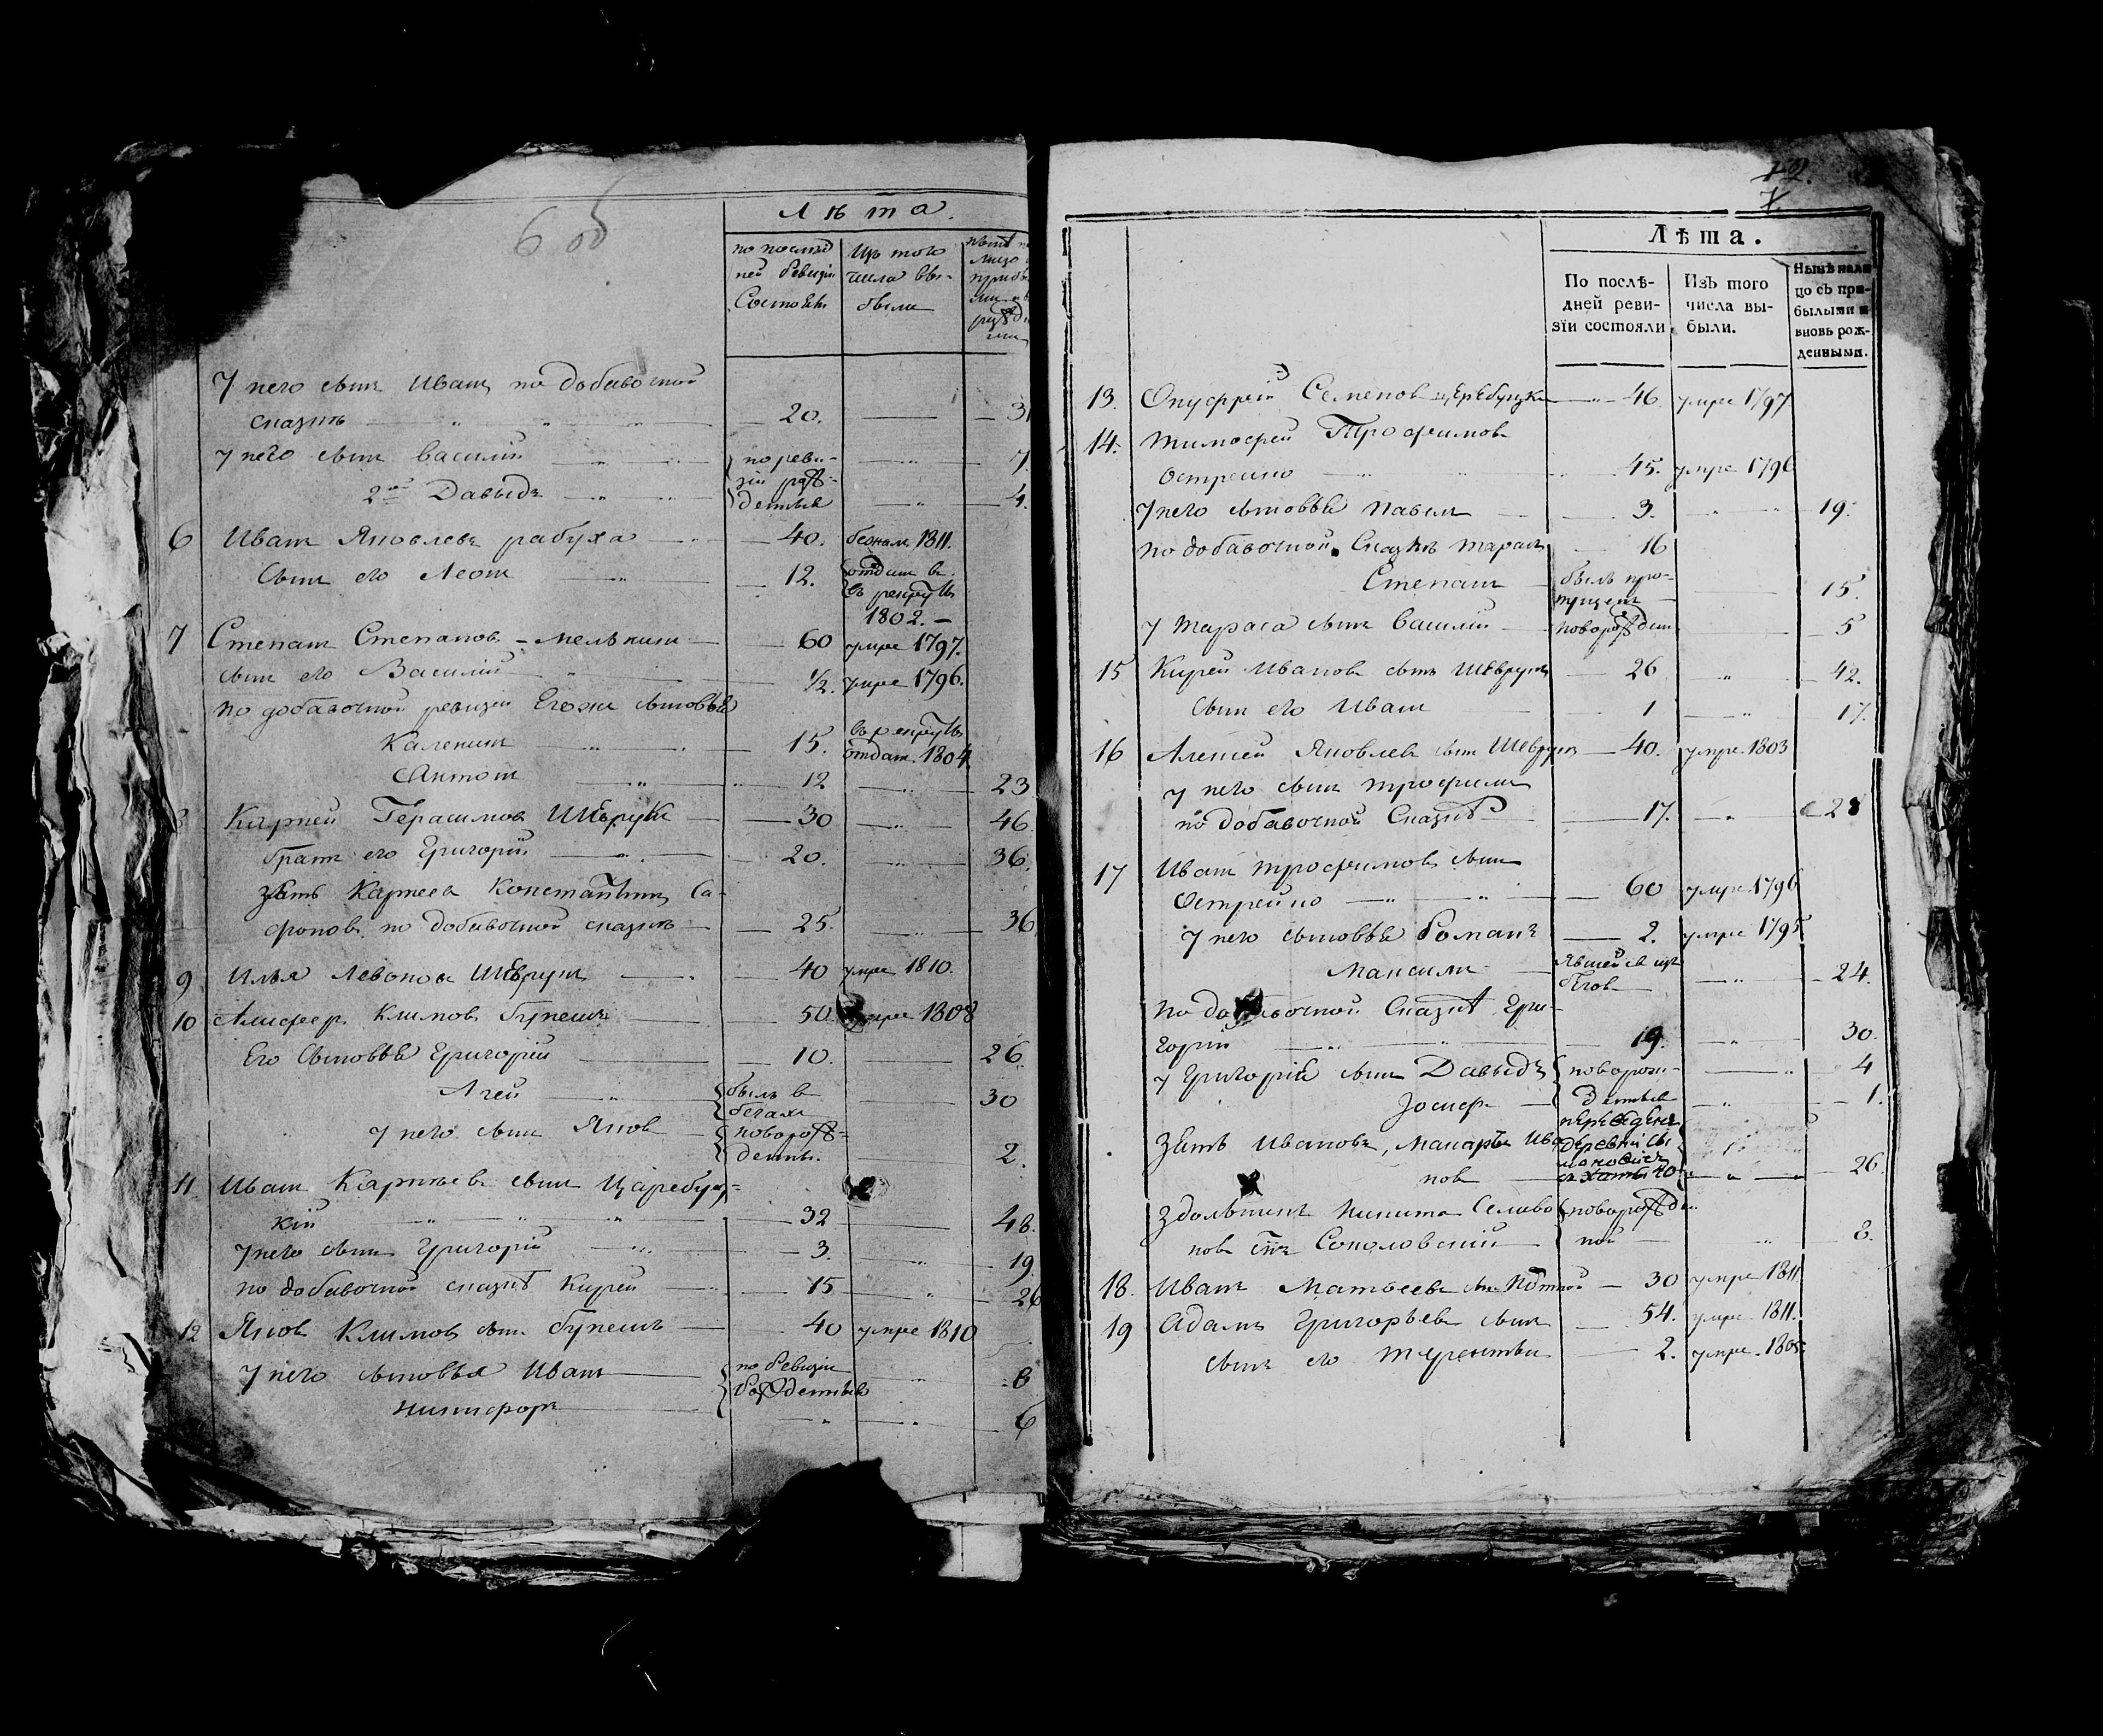 6 об
Лѣта.
по послѣд
ней ревизіи
Состояли
Изъ того
числа вы-
были
У него сынъ Иванъ по добавочной
сказкѣ 20. 31
У него сынъ Василій по реви- 7.
зіи рож-
2й Давыдъ денные 4.
6 Иванъ Яковлевъ рабуха 40. бежалъ 1811.
Сынъ его Леонъ 12. отданъ в
въ рекруты
1802.
7 Степанъ Степановъ Мельникъ 60 умре 1797.
сынъ его Василій 1/2. умре 1796.
по добавочной ревизіи Егожъ сыновья
Каленикъ 15. въ рекруты
отдан. 1804
Антонъ 12 23
Карней Герасимовъ 30 46
братъ его Григорій 20. 36.
зять Карнеевъ Константинъ Са-
фоновъ по добавочной сказкѣ 25. 36
9 Илья Левоновъ 40 умре 1810.
10 Климовъ 50. умре 1808
Его Сыновья Григорій 10. 26.
Агей былъ в 30
бегахъ
У него сынъ Яковъ новорож-
денны. 2.
11 Иванъ Карнѣевъ сынъ Царебуц-
кій 32 48.
У него сынъ Григорій 3. 19
по добавочной сказкѣ Кирей 15 26
12 Яковъ Климовъ сынъ 40 умре 1810
У него сыновья Иванъ по ревизіи 8
рожденные
Никифоръ 6
12.
7.
Лѣта.
По послѣ-
дней реви-
зіи состояли
Изъ того
числа вы-
были.
Нынѣ нали
цо съ при-
былыми и
вновь рож-
денными.
13. Онуфрій Семеновъ 46 умре 1797
14. Тимофей Трофимовъ
Острейко 45. умре 1796
У него сыновья Павелъ 3. 19.
по добавочной Сказкѣ Тарасъ 16
Степанъ былъ про- 15.
пущенъ
У Тараса сынъ Василій новорожден 5
15 Кирей Ивановъ сынъ 26 42.
Сынъ его Иванъ 1 17.
16 Алексей Яковлевъ сынъ 40. умре 1803
У него сынъ Трофимъ
по добавочной Сказкѣ 17. 28
17 Иванъ Трофимовъ сынъ
Острейко 60 умре 1796
У него сыновья Романъ 2. умре 1795
Максимъ явшейся изъ 24.
бѣгов
по добавочной Сказкѣ Гри-
горій 19. 30.
У Григорій сынъ Давыдъ новорож- 4
Іосиф денные 1.
переведенъ
Зять Ивановъ, Макаръ Ива деревни
нов 26
Никита новорожде
нов сынъ Соколовскій ной 8.
18. Иванъ Матвеевъ 30 умре 1811
19 Адамъ Григорьевъ сынъ 54. умре 1811.
сынъ его Терентьи 2. умре 1805